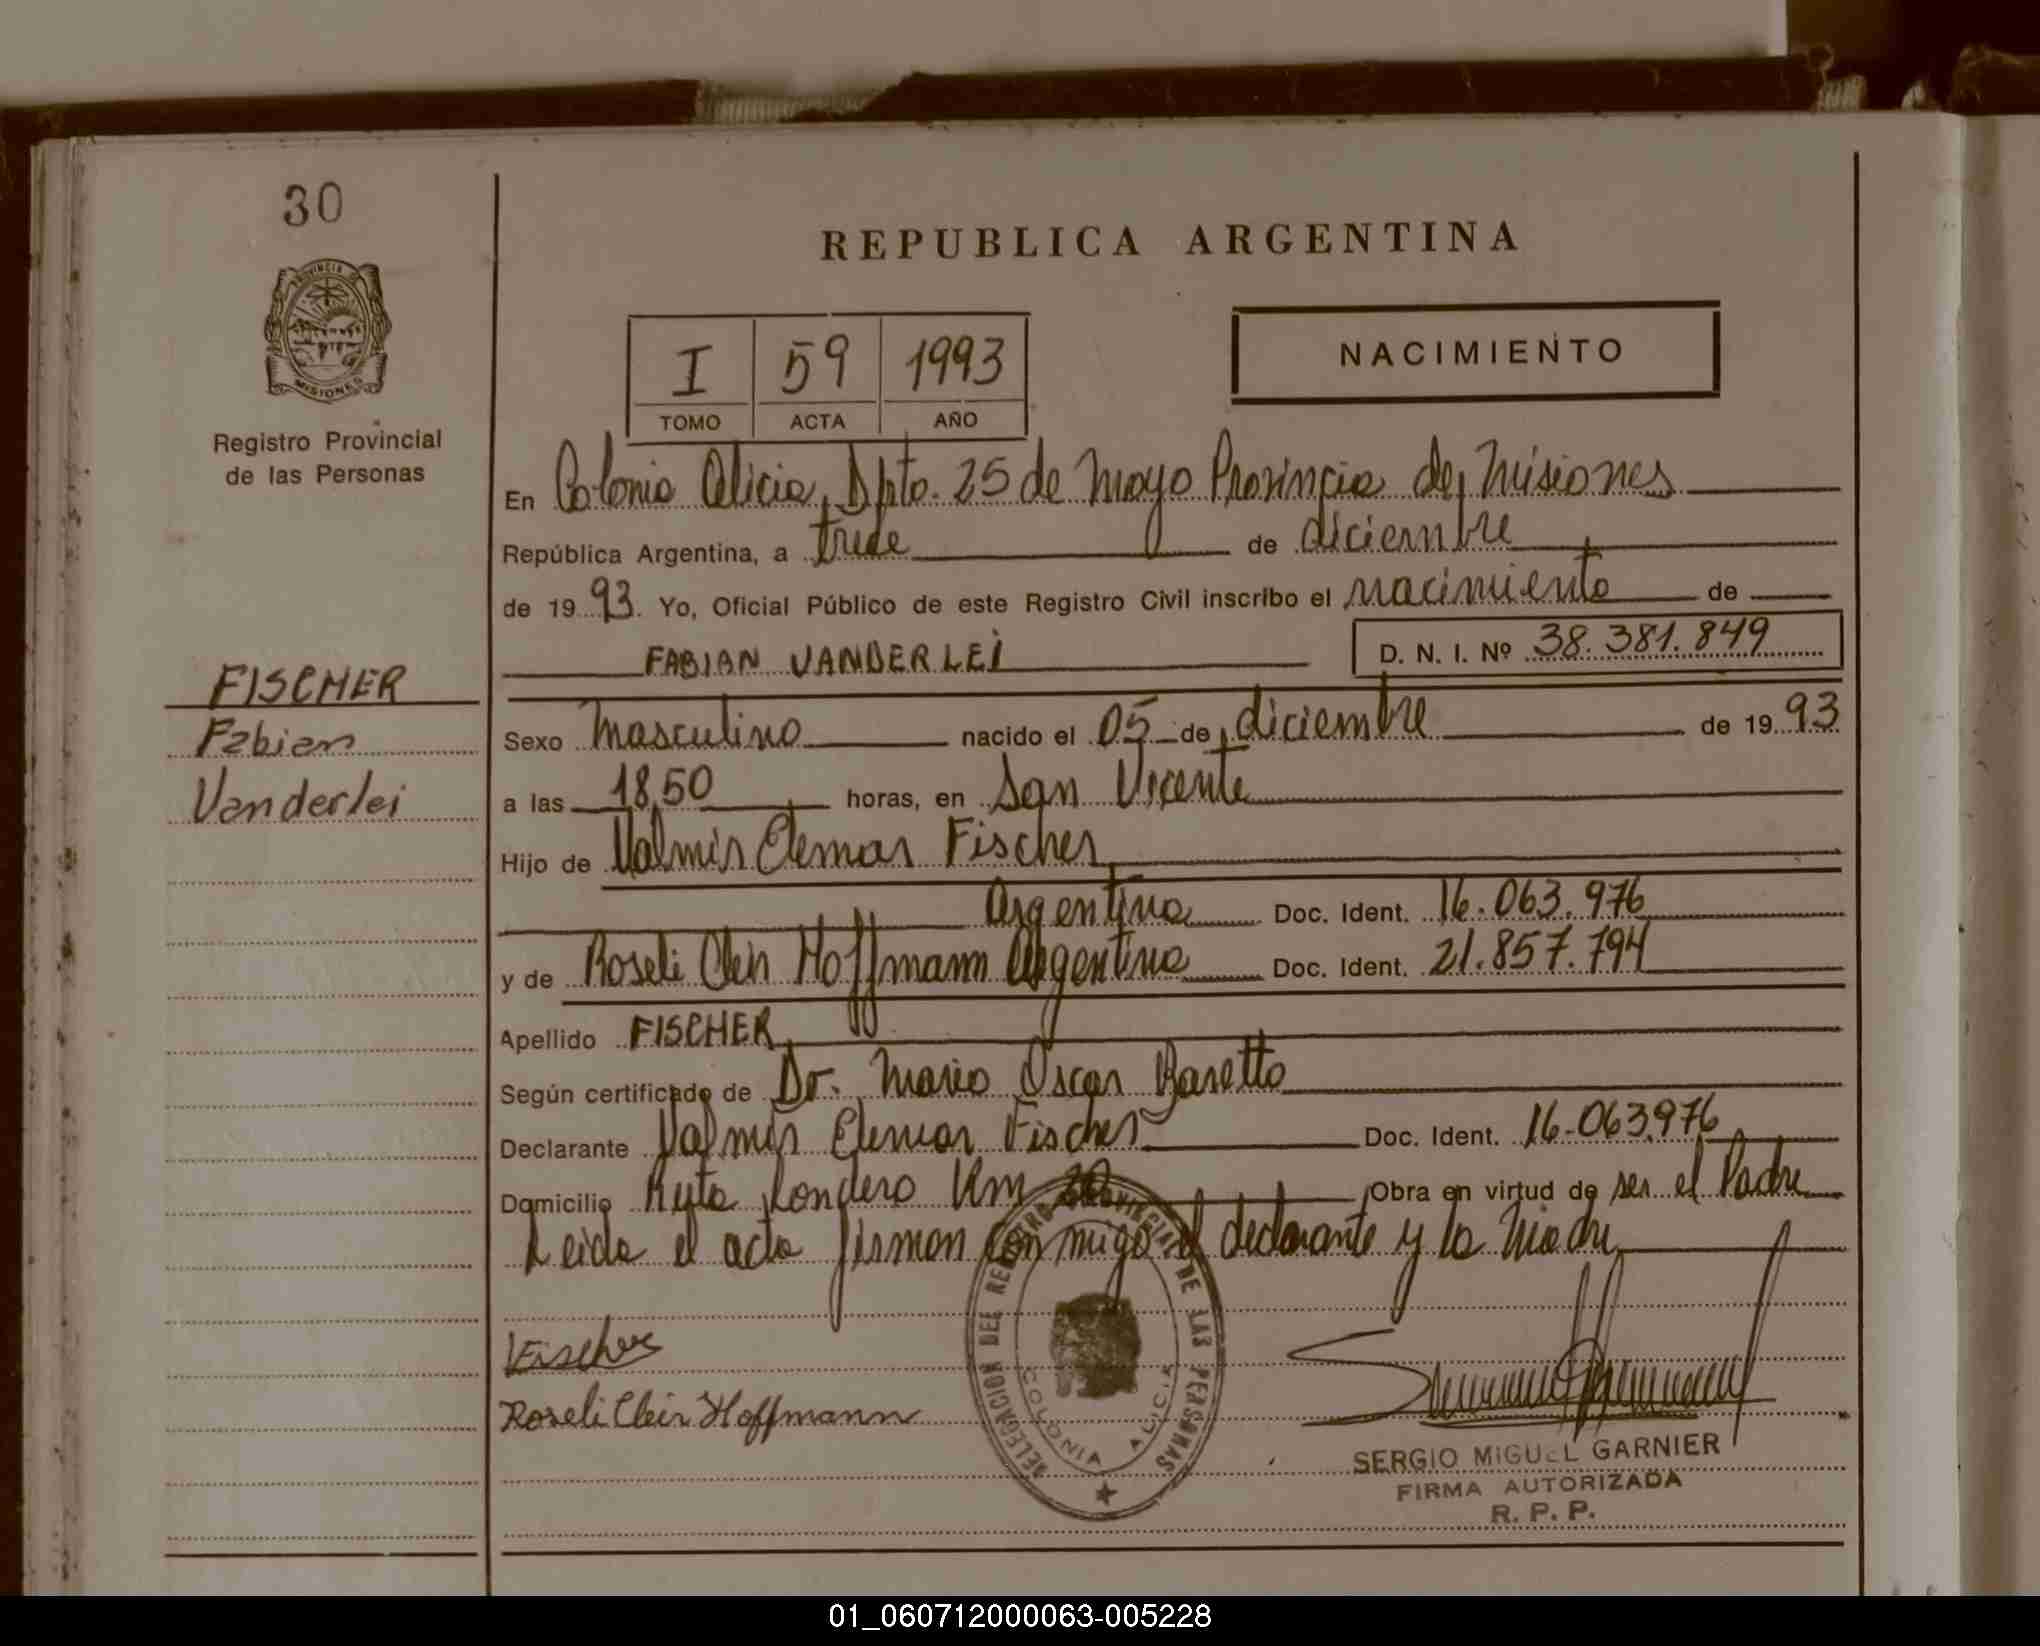 30
PROVINCIA DE
MISIONES
Registro Provincial
de las Personas
FISCHER
Fabian
Vanderlei
REPUBLICA ARGENTINA
I 59 1993
TOMO ACTA AÑO
NACIMIENTO
En Colonia Alicia, Dpto. 25 de Mayo Provincia de Misiones
República Argentina, a trece de diciembre
de 1993. Yo, Oficial Público de este Registro Civil inscribo el nacimiento de
FABIAN VANDERLEI D. N. I. Nº 38.381.849
Sexo Masculino nacido el 05 de diciembre de 1993
a las 18,50 horas, en San Vicente
Hijo de Valmir Elemar Fischer
Argentina Doc. Ident. 16.063.976
y de Roseli Cleir Hoffmann Argentina Doc. Ident. 21.857.794
Apellido FISCHER
Según certificado de Dr. Mario Oscar Basetto
Declarante Valmir Elemar Fischer Doc. Ident. 16.063.976
Domicilio Ruta Londero Km 20 Obra en virtud de ser el Padre
Leida el acta firman conmigo el declarante y la Madre
VFischer
Roseli Cleir Hoffmann
DELEGACION DEL REGISTRO PROVINCIAL DE LAS PERSONAS
COLONIA ALICIA
SERGIO MIGUEL GARNIER
FIRMA AUTORIZADA
R. P. P.
01_060712000063-005228